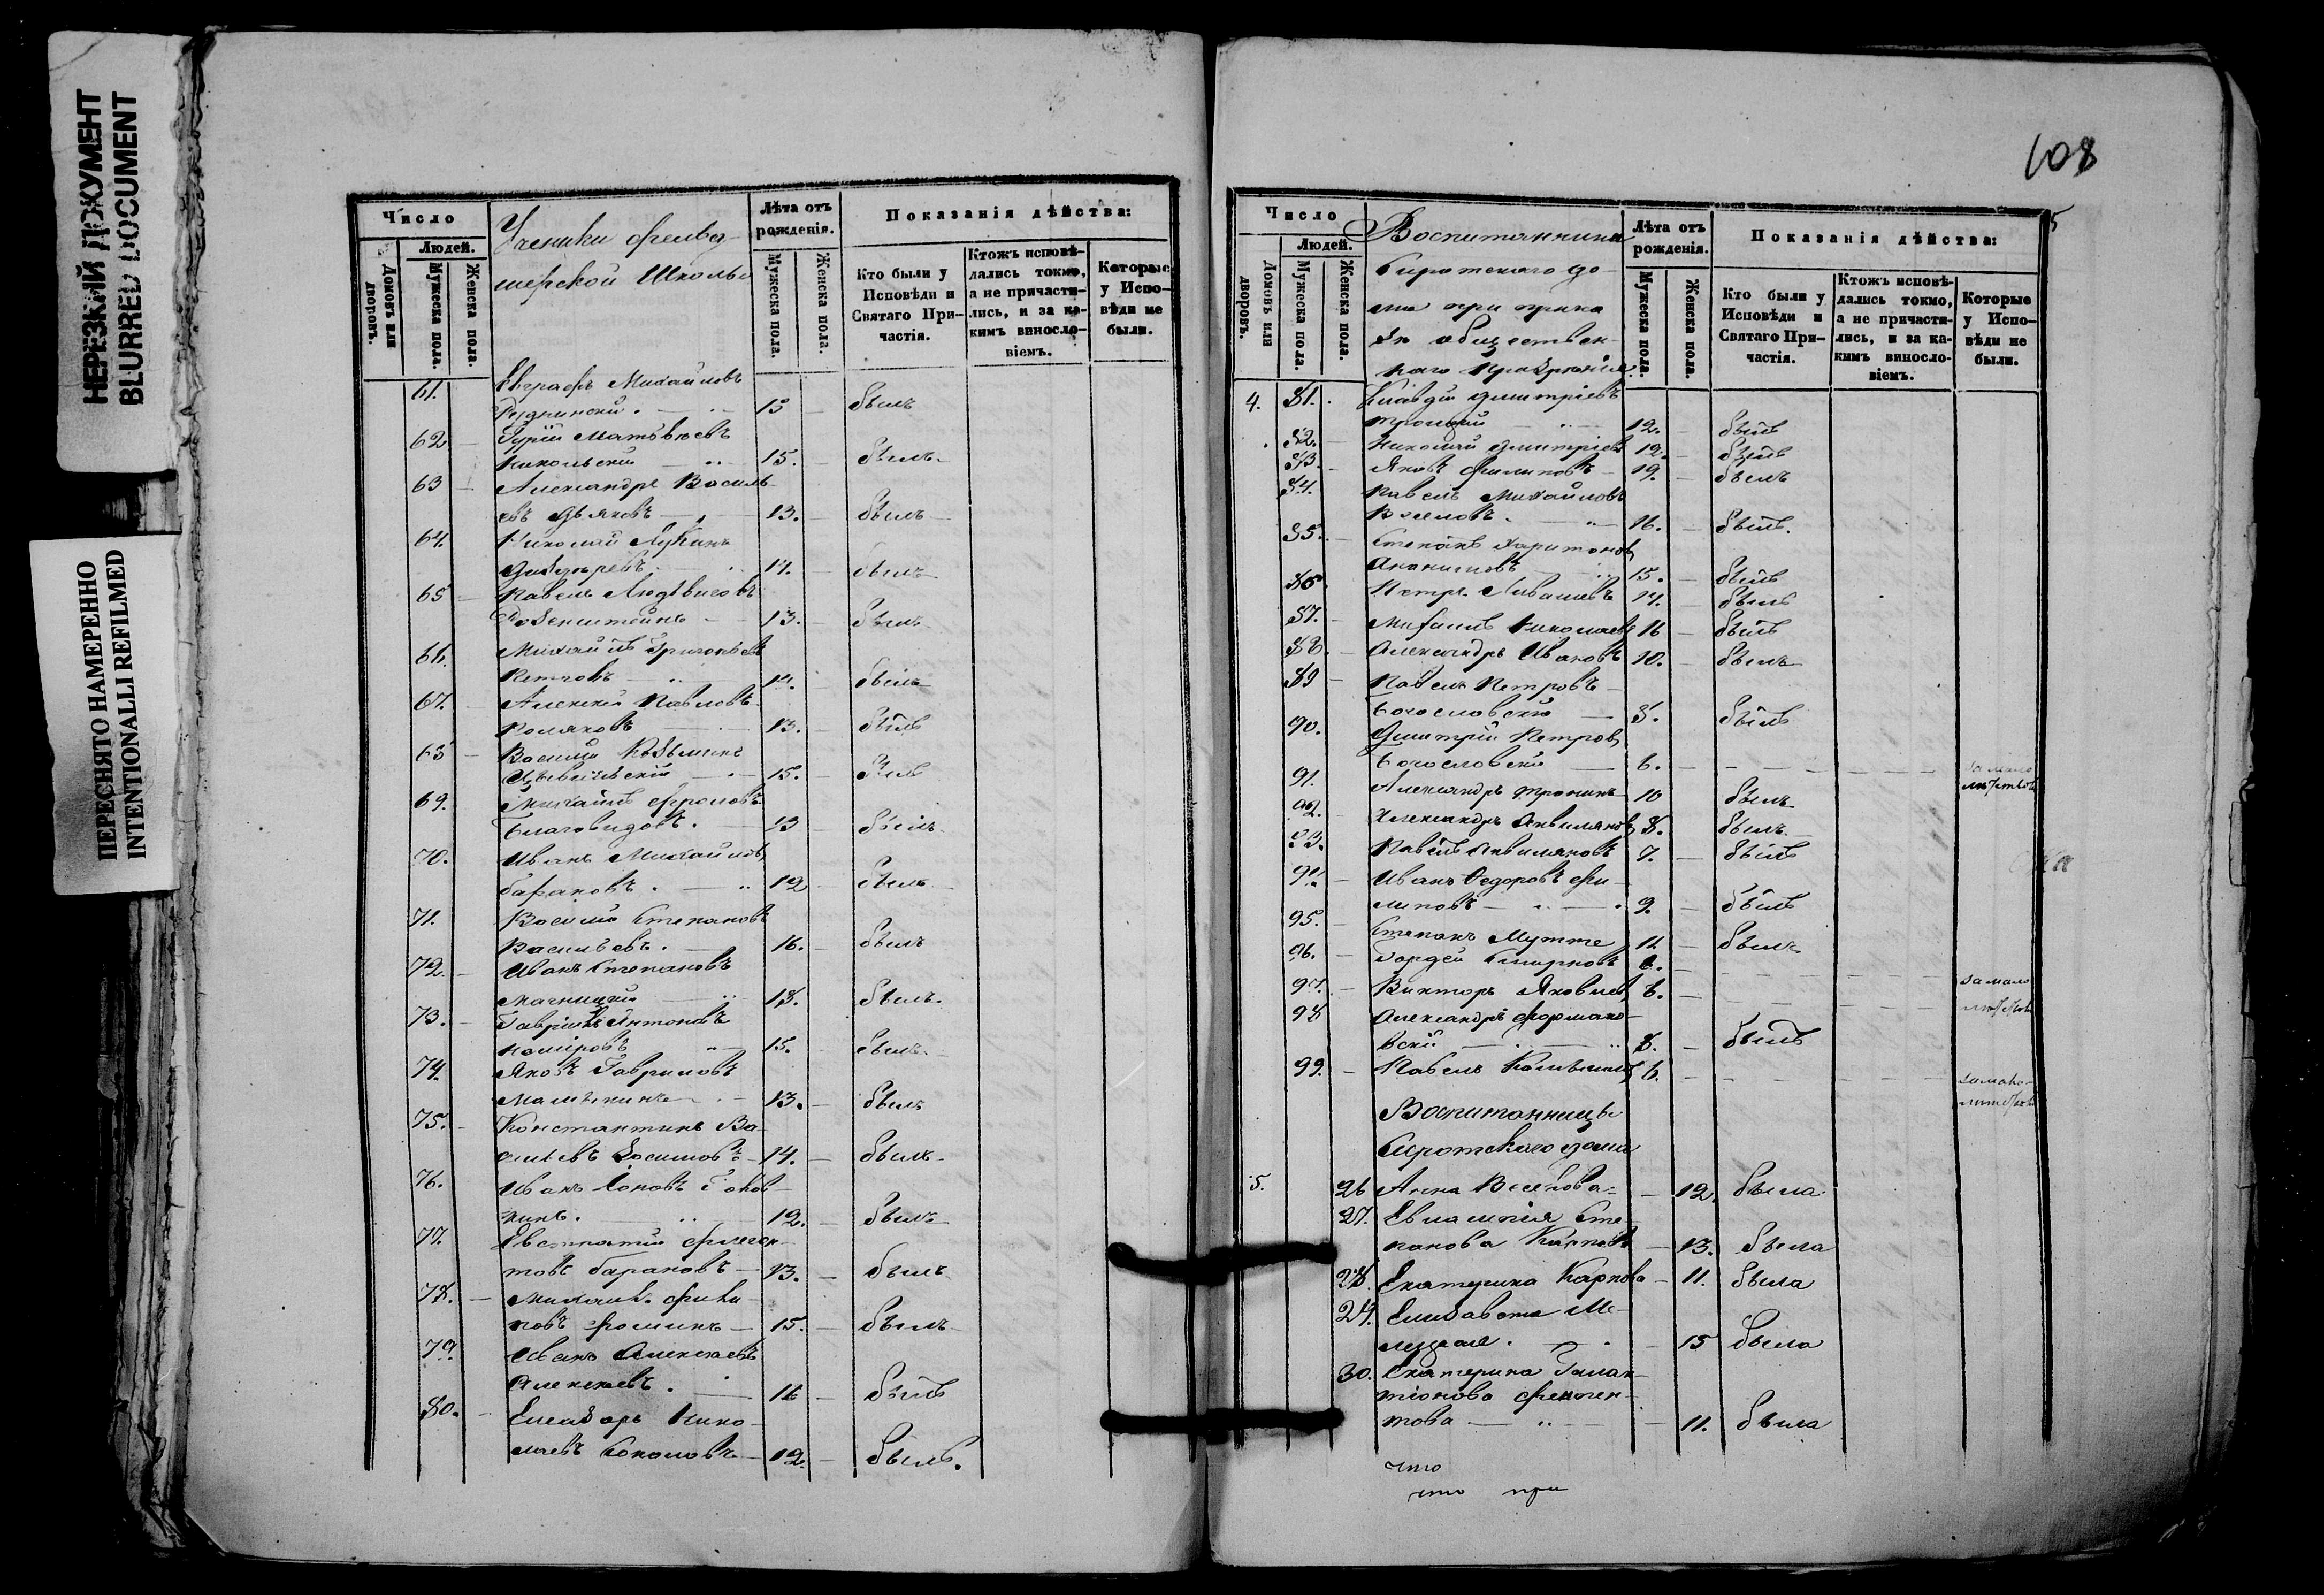 НЕРЕЗКИЙ ДОКУМЕНТ
BLURRED DOCUMENT
ПЕРЕСНЯТО НАМЕРЕННО
INTENTIONALLI REFILMED
Число
Людей.
Домовъ или дворовъ.
Мужеска пола.
Женска пола.
Ученики фельд-
шерской Школы
Лѣта отъ рожденія.
Мужеска пола.
Женска пола.
Показанія дѣйства:
Кто были у Исповѣди и Святаго Причастія.
Ктожъ исповѣдались токмо, а не причастились, и за какимъ винословіемъ.
Которые у Исповѣди не были.
61. Евграфъ Михайловъ
15 былъ
62 Гурій Матвѣевъ
Никольскій 15. былъ
63 Александръ Василь-
евъ Дьяковъ 13. былъ
64. Николай Лукинъ
14. былъ
65 Павелъ
Розенштейнъ 13. былъ
66. Михайлъ Григорьевъ
Петровъ 14. былъ
67. Алексей Павловъ
Поляковъ 13. былъ
68 Василій Козьминъ
15. былъ
69. Михайлъ Фроловъ
Благовидовъ. 13 былъ
70. Иванъ Михайловъ
Барановъ. 12 былъ
71. Василій Степановъ
Васильевъ. 16. былъ
72. Иванъ Степановъ
13. былъ.
73. Гавріилъ Антоновъ
15. былъ
74. Яковъ Гавриловъ
13. былъ
75. Константинъ Ва-
сильевъ 14. былъ
76. Иванъ
12. былъ
77. Евстратій
товъ Барановъ 13. былъ
78. Михаилъ Фили-
повъ Фоминъ 15. былъ
79. Иванъ Алексѣевъ
Алексѣевъ. былъ
80. Елеазаръ Нико-
лаевъ Соколовъ 12. былъ.
108
5
Число
Людей.
Домовъ или дворовъ.
Мужеска пола.
Женска пола.
Воспитанники
Сиротскаго до-
ма при прика-
зѣ обществен-
наго Призрѣнія.
Лѣта отъ рожденія.
Мужеска пола.
Женска пола.
Показанія дѣйства:
Кто были у Исповѣди и Святаго Причастія.
Ктожъ исповѣдались токмо, а не причастились, и за какимъ винословіемъ.
Которые у Исповѣди не были.
4. 81. Клавдій Димитріевъ
Троицкій 12. былъ
82. Николай Дмитріевъ 12. былъ
83. Яковъ Филиповъ 19. былъ
84. Павелъ Михайловъ
16. былъ.
85. Степанъ Харитоновъ
15. былъ
86. Петръ 14. былъ
87. Михаилъ Николаевъ 16 былъ
88 Александръ Ивановъ 10. былъ
89 Павелъ Петровъ
Богословскій 8. былъ
90. Дмитрій Петровъ
Богословскій 6. за мало
лѣтствомъ
91. Александръ 10 былъ
92. Александръ 8. былъ
93. Павелъ 7. былъ
94. Иванъ Ѳедоровъ Фи-
липовъ 9. былъ
95. Степанъ 11 былъ
96. Гордей Смирновъ 6.
за мало
97. Викторъ Яковлевъ 6.
98 Александръ
вскій 8. былъ
99. Павелъ 6. за мало-
Воспитанницы
Сиротскаго дома
5. 26 Анна 12. была
27. Евлампія Сте-
панова Карпова 13. была
28. Екатерина Карпова 11. была
29. Елизавета Ме-
15 была
30. Екатерина Галак-
тіонова
това 11. была
что
что при